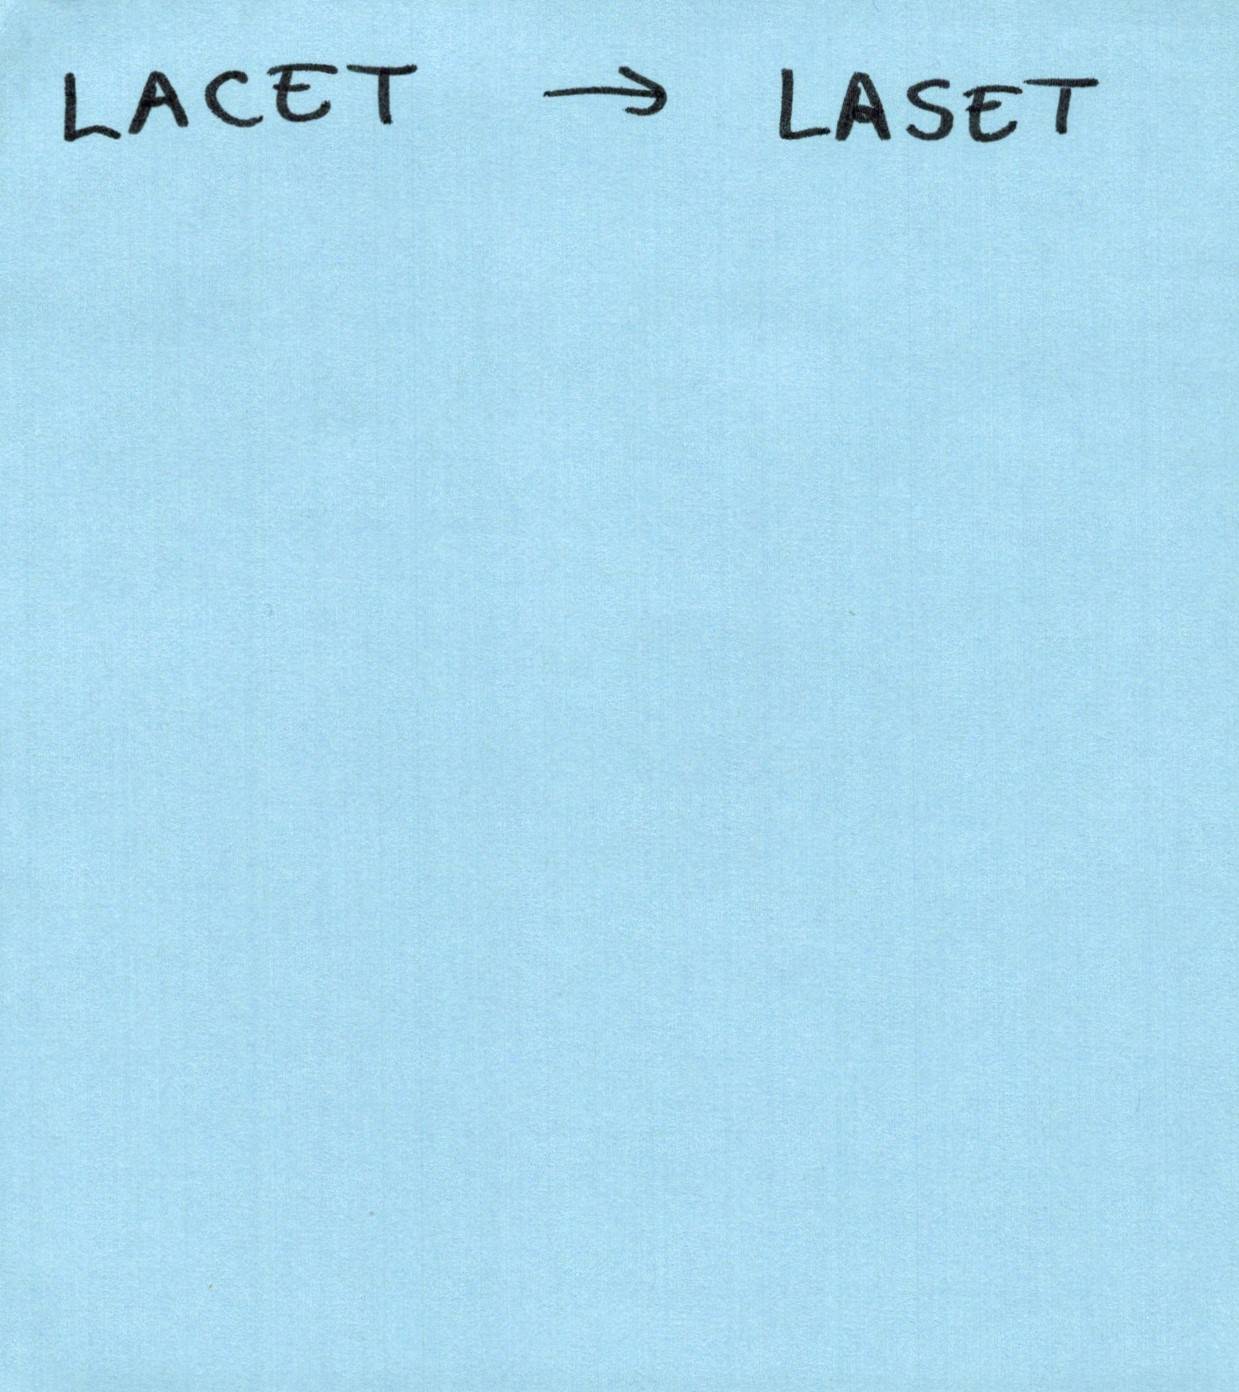 LACET → LASET